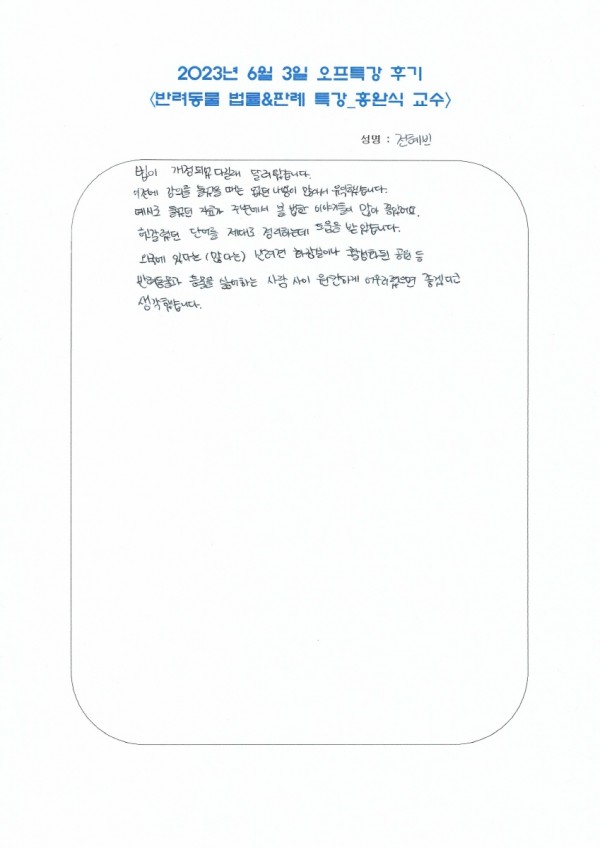 2023년 6월 3일 오프특강 후기
<반려동물 법률&판례 특강_홍완식 교수>
성명 : 전혜빈
법이 개정되고 다길래 달려왔습니다.
이전에 강의를 들었을 때는 없던 내용이 있어서 유익했습니다.
예시로 들었던 자료가 주변에서 볼 법한 이야기들이 많아 좋았어요.
헷갈렸던 단어를 제대로 정리하는데 도움을 받았습니다.
외국에 있다는 (많다는) 반려견 화장실이나 활성화된 공원 등
반려동물과 동물을 싫어하는 사람 사이 원만하게 어우러졌으면 좋겠다고
생각했습니다.